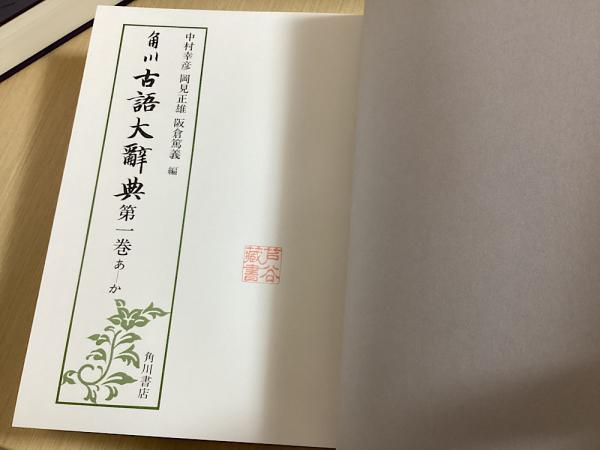 中村幸彦 岡見正雄 阪倉篤義 編
角川 古語大辭典 第一巻 あ―か
角川書店
芦谷
藏書